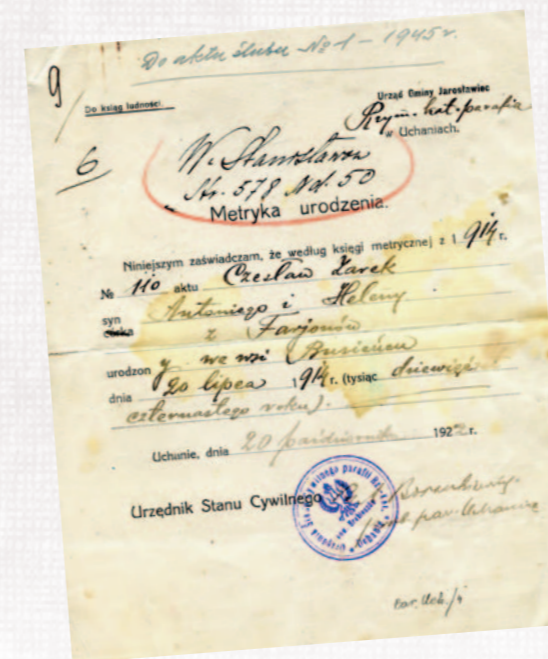 Do aktu ślubu No 1 – 1945 r.
9
Do ksiąg ludności.
Urząd Gminy Jarosławiec
Rzym. kat. parafia
w Uchaniach.
6
W. Stanisławów
Str. 578 Nd. 50
Metryka urodzenia.
Niniejszym zaświadczam, że według księgi metrycznej z 1914 r.
№ 110 aktu Czesław Żarek
syn Antoniego i Heleny
córka z Farjonów
urodzon y we wsi Busieńcu
dnia 20 lipca 1914 r. (tysiąc dziewięćset
czternastego roku).
Uchanie, dnia 20 października 1922 r.
Urzędnik Stanu Cywilnego
par. Uchanie